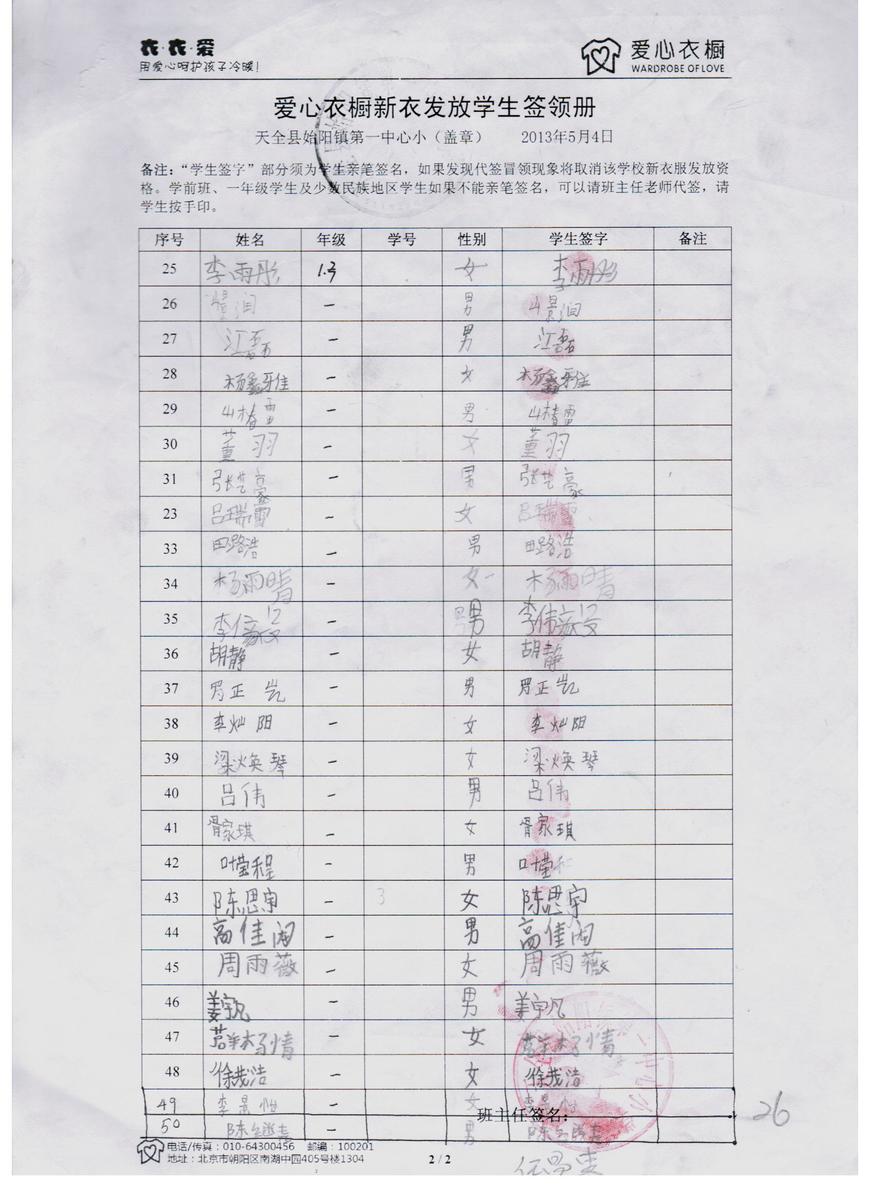 衣·衣·爱
用爱心呵护孩子冷暖!
爱心衣橱
WARDROBE OF LOVE
爱心衣橱新衣发放学生签领册
天全县始阳镇第一中心小(盖章) 2013年5月4日
备注:“学生签字”部分须为学生亲笔签名,如果发现代签冒领现象将取消该学校新衣服发放资
格。学前班、一年级学生及少数民族地区学生如果不能亲笔签名,可以请班主任老师代签,请
学生按手印。
序号 姓名 年级 学号 性别 学生签字 备注
25 李雨彤 1.3 女 李雨彤
26 男
27 江磊 一 男 江磊
28 杨鑫雅 一 女 杨鑫雅
29 一 男
30 董羽 一 女 董羽
31 张艺豪 一 男 张艺豪
23 吕瑞雪 一 女 吕瑞雪
33 田路浩 一 男 田路浩
34 杨雨晴 一 女 杨雨晴
35 一 男
36 胡静 一 女 胡静
37 罗正岂 一 男 罗正岂
38 李灿阳 一 女 李灿阳
39 梁焕琴 一 女 梁焕琴
40 吕伟 一 男 吕伟
41 胥家琪 一 女 胥家琪
42 叶莹程 一 男 叶莹程
43 陈思宇 一 3 女 陈思宇
44 高佳闵 一 男 高佳闵
45 周雨薇 一 女 周雨薇
46 姜宇凡 一 男 姜宇凡
47 一 女
48 徐茂洁 一 女 徐茂洁
49 李景怡 一 女 李景怡
班主任签名: 26
50 一 男
电话/传真:010-64300456 邮编:100201
地址:北京市朝阳区南湖中园405号楼1304
2 / 2